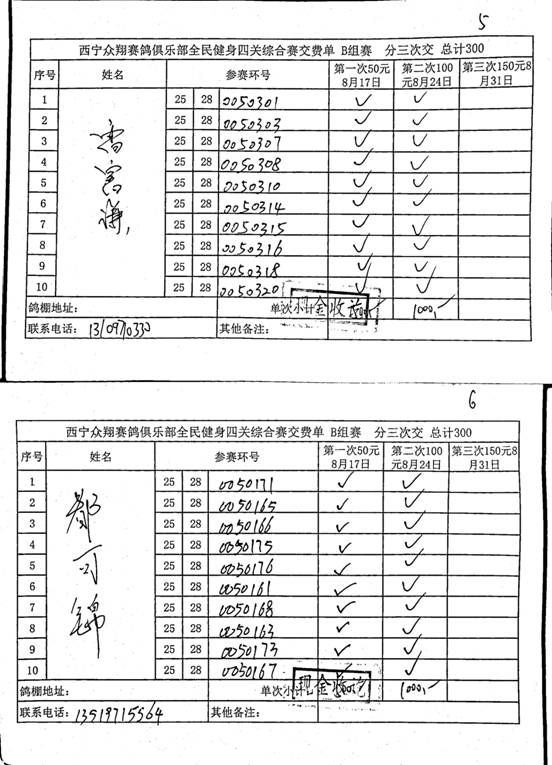 5
西宁众翔赛鸽俱乐部全民健身四关综合赛交费单 B组赛 分三次交 总计300
序号 姓名 参赛环号 第一次50元8月17日 第二次100元8月24日 第三次150元8月31日
1 25 28 0050301 ✓ ✓
2 25 28 0050303 ✓ ✓
3 25 28 0050307 ✓ ✓
4 25 28 0050308 ✓ ✓
5 25 28 0050310 ✓ ✓
6 25 28 0050314 ✓ ✓
7 25 28 0050315 ✓ ✓
8 25 28 0050316 ✓ ✓
9 25 28 0050318 ✓ ✓
10 25 28 0050320 ✓ ✓
鸽棚地址： 单次小计 现金收讫 1000,-
联系电话： 其他备注：
6
西宁众翔赛鸽俱乐部全民健身四关综合赛交费单 B组赛 分三次交 总计300
序号 姓名 参赛环号 第一次50元8月17日 第二次100元8月24日 第三次150元8月31日
都可锦
1 25 28 0050171 ✓ ✓
2 25 28 0050165 ✓ ✓
3 25 28 0050166 ✓ ✓
4 25 28 0050175 ✓ ✓
5 25 28 0050176 ✓ ✓
6 25 28 0050161 ✓ ✓
7 25 28 0050168 ✓ ✓
8 25 28 0050163 ✓ ✓
9 25 28 0050173 ✓ ✓
10 25 28 0050167 ✓ ✓
鸽棚地址： 单次小计 现金收讫 1000,-
联系电话：13519715564 其他备注：